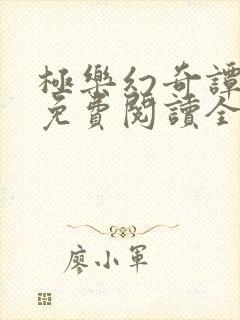 極樂幻奇譚
免費閱讀全
廖小軍